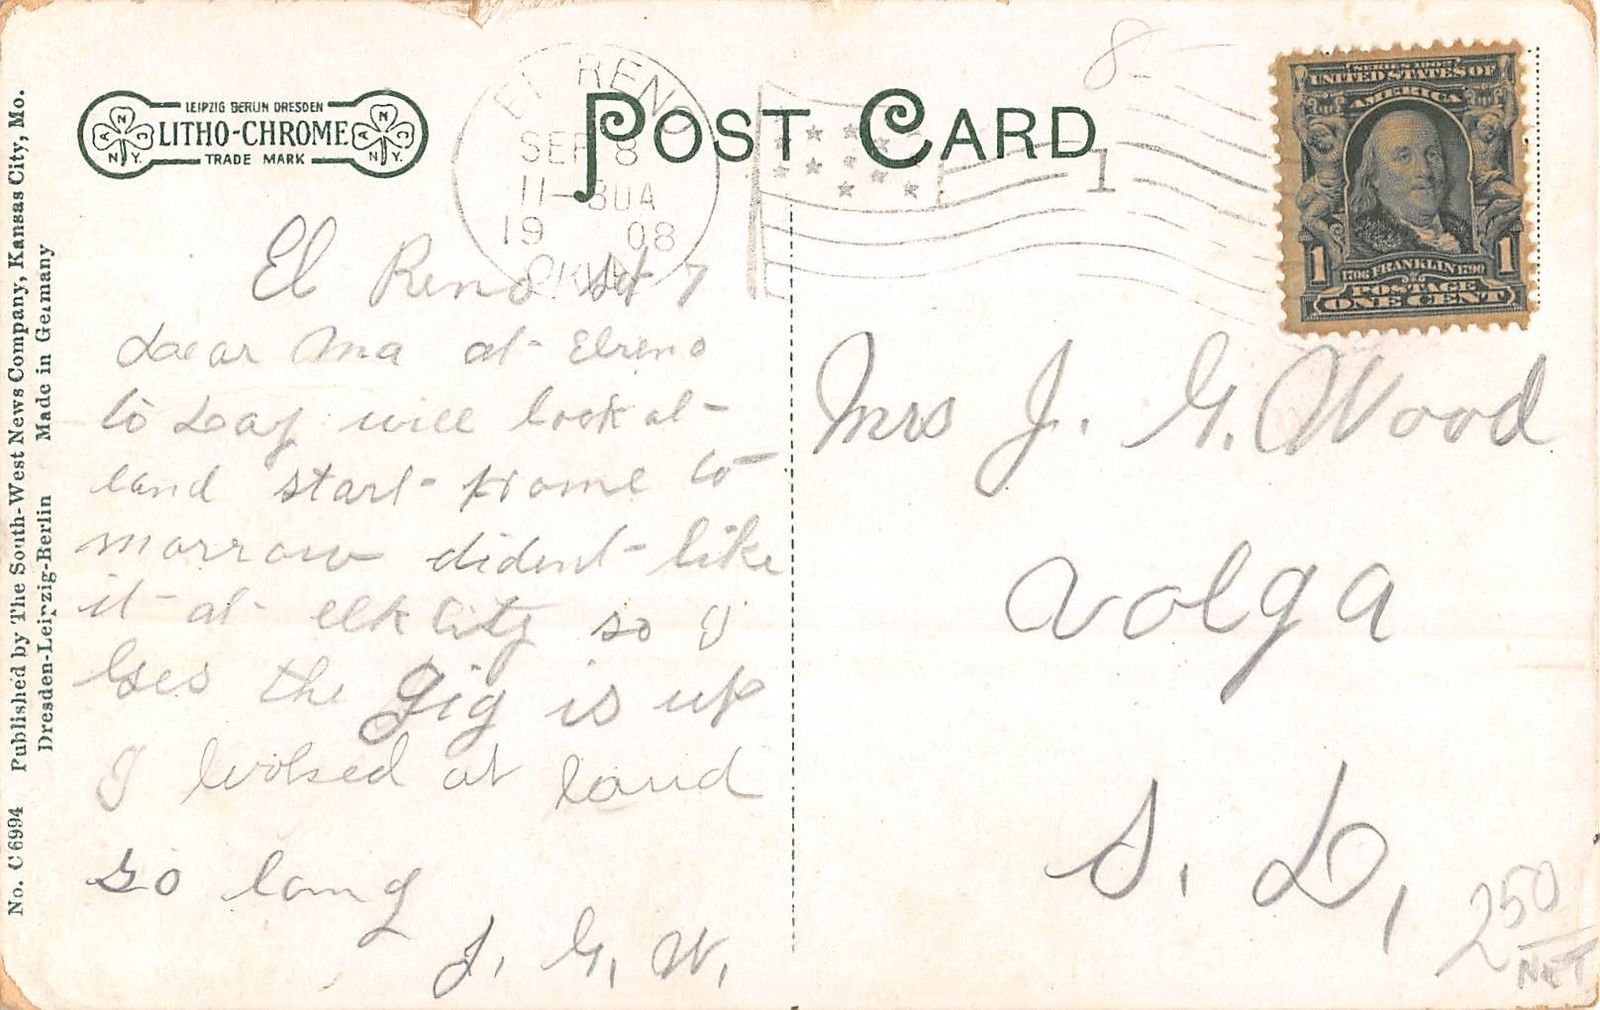 LEIPZIG BERLIN DRESDEN
LITHO-CHROME
TRADE MARK
A N C
N.Y.
A N C
N.Y.
EL RENO
SEP 8
11-30A
1908
OKLA
POST CARD
1
8-
SERIES 1902
UNITED STATES OF
AMERICA
1 1
1706 FRANKLIN 1790
POSTAGE
ONE CENT
No. C 6994 Published by The South-West News Company, Kansas City, Mo.
Dresden-Leipzig-Berlin Made in Germany
El Reno Set 7
Dear Ma at Elreno
to Day will look at
land start home to
morrow dident like
it at elk City so I
Gses the Gig is up
I looked at land
so long
J. G. W.
Mrs J. G. Wood
Volga
S. D,
2 50
NET